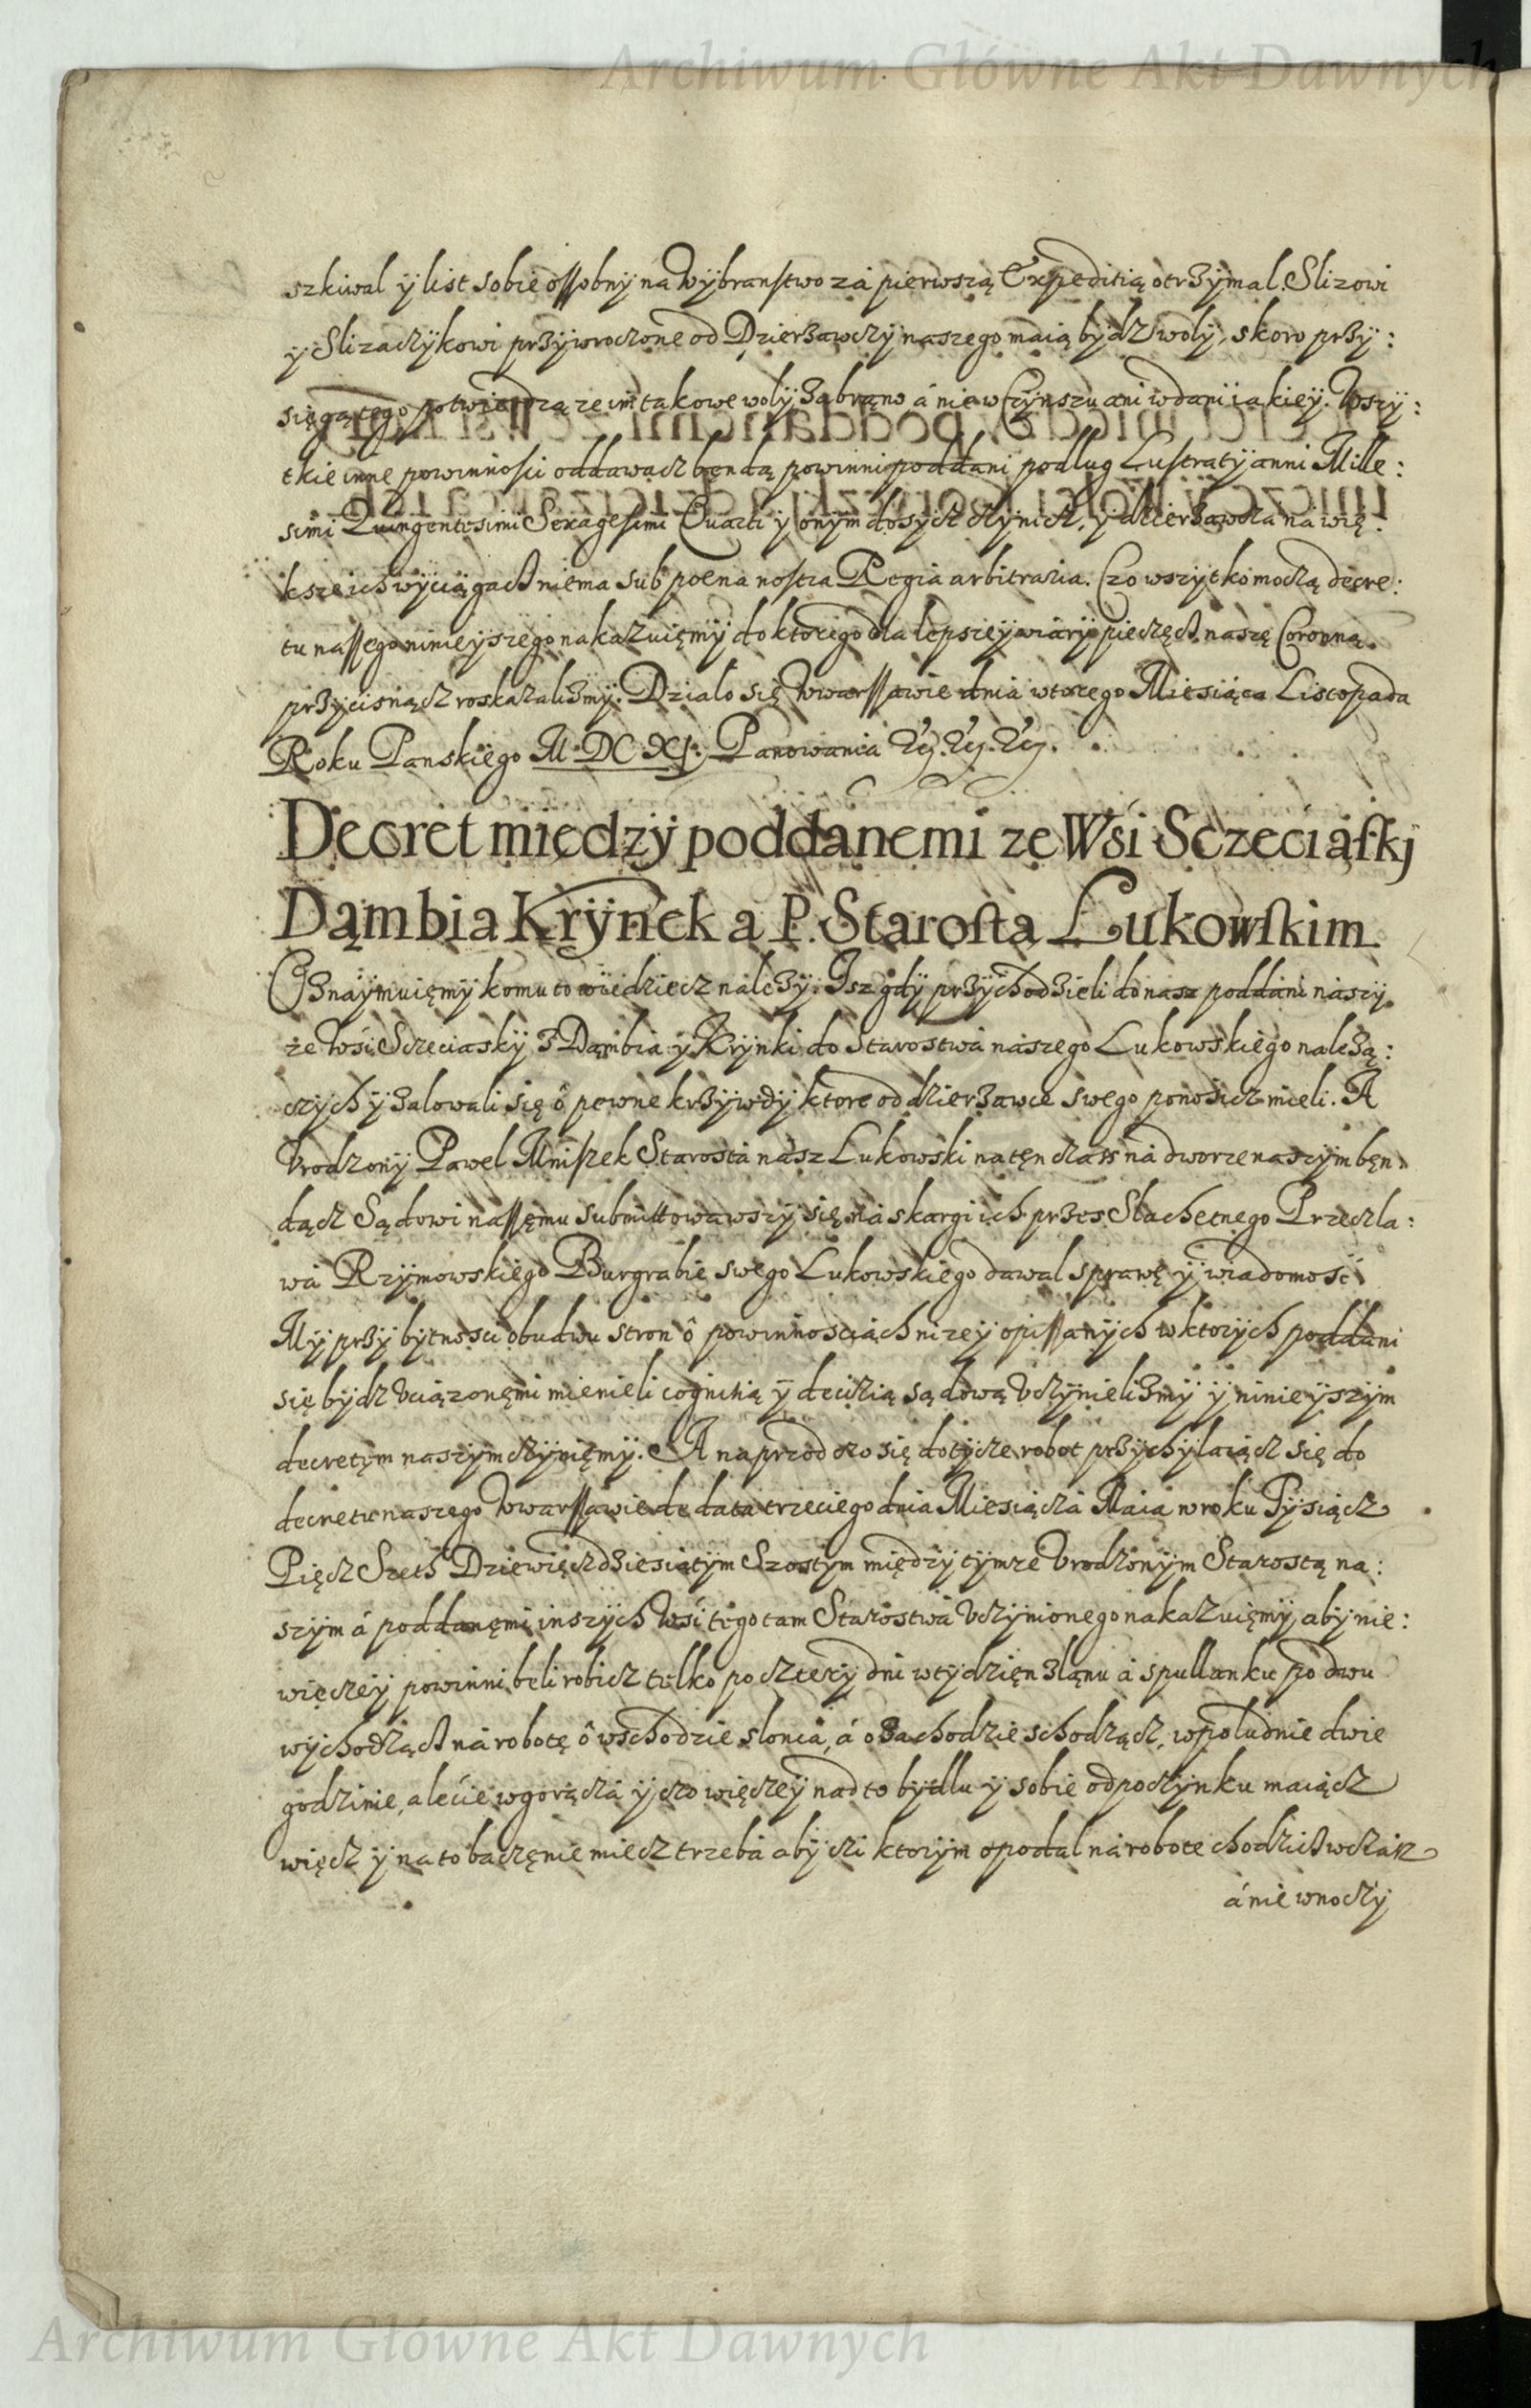 Archiwum Główne Akt Dawnych
szkiwal ÿ list sobie ossobnÿ na Wÿbranstwo zá pierwszą Expeditią otrzÿmal. Slizowi
ÿ Slizaczÿkowi przÿwroczone od Dzierzawczÿ naszego máią bÿdz wolÿ, skoro przÿ:
sięgą tego potwierdzą ze im takowe wolÿ zabrąno á nie w Czÿnszu ani w dani iakieÿ. Wszÿ:
tkie inne powinności oddawacz będą powinni poddani podlug Lustratÿ anni Mille:
simi Quingentesimi Sexagesimi Quarti ÿ onÿm dosÿcz czÿnicz, ÿ dzierzawcza ná wię:
ksze ich wÿciągacz niema sub poena nostra Regia arbitraria. Czo wszÿtko moczą decre:
tu nassego ninieÿszego nakazuięmÿ do ktorego dla lepszeÿ wiárÿ pieczęcz naszę Coronną
przÿcisnącz roskazalizmÿ. Dzialo się w Warssawie dniá wtorego Miesiąca Listopada
Roku Panskiego M. DC XI. Panowania
Decret międzÿ poddanemi ze Wśi Sczeciąskj
Dąmbia Krÿnek a P. Starostą Lukowskim
Oznaÿmuięmÿ komu to wiedziecz nálezÿ. Isz gdÿ przÿchodzieli do nasz poddani nászÿ
ze Wśi Sczeciaskÿ z Dąmbia ÿ Krÿnki do Starostwá naszego Lukowskiego nalezą:
czÿch ÿ zalowali się ô pewne krzÿwdÿ ktore od dzierzawce swego ponosicz mieli. A
Vrodzonÿ Pawel Mniszek Starostá nász Lukowski na tęn czass ná dworze naszÿm bęn
dącz Sądowi nassęmu submittowawszÿ się ná skargi ich przes Slachetnego Przeczla:
wá Rzÿmowskiego Burgrabię swego Lukowskiego dawal sprawę ÿ wiadomość
Mÿ przÿ bÿtności obudwu stron ô powinnościách nizeÿ opissanÿch w ktorÿch poddani
się bÿdz vciązonęmi mienieli cognitią ÿ decizią sądową vczÿnielizmÿ ÿ ninieÿszÿm
decretęm naszÿm czÿnięmÿ. A naprzod czo się dotÿcze robot przÿchÿlaiącz się do
decretu naszego w Warssawie de data trzeciego dnia Miesiączá Maia w roku Tÿsiącz
Pięcz Szeth Dziewięczdziesiątÿm Szostÿm międzÿ tÿmze Vrodzonÿm Starostą na:
szÿm á poddanęmi inszÿch Wśi tego tam Starostwá vczÿnionego nakazuięmÿ, abÿ nie:
więczeÿ powinni beli robicz telko po czterÿ dni w tÿdzięn z ląnu á s pullanku po dwu
wÿchodzącz ná robotę ô wschodzie sloncá, á o zachodzie schodzącz, w poludnie dwie
godzinie, a lecie w gorączá ÿ czo więczeÿ nad to bÿdlu ÿ sobie odpoczÿnku maiącz
więcz ÿ na to baczęnie miecz trzebá abÿ czi ktorÿm opodal ná robotę chodzicz w czás
á nie w noczÿ
Archiwum Główne Akt Dawnych